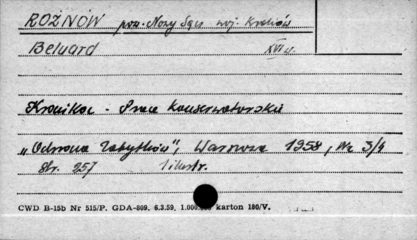 ROŻNÓW pow. Nowy Sącz woj. Kraków
Beluard XVI w.
Kronika - Prace konserwatorskie
"Ochrona Zabytków", Warszawa 1958, Nr 3/4
str. 257 ilustr.
CWD B-15b Nr 515/P. GDA-809. 6.3.59. karton 180/V.